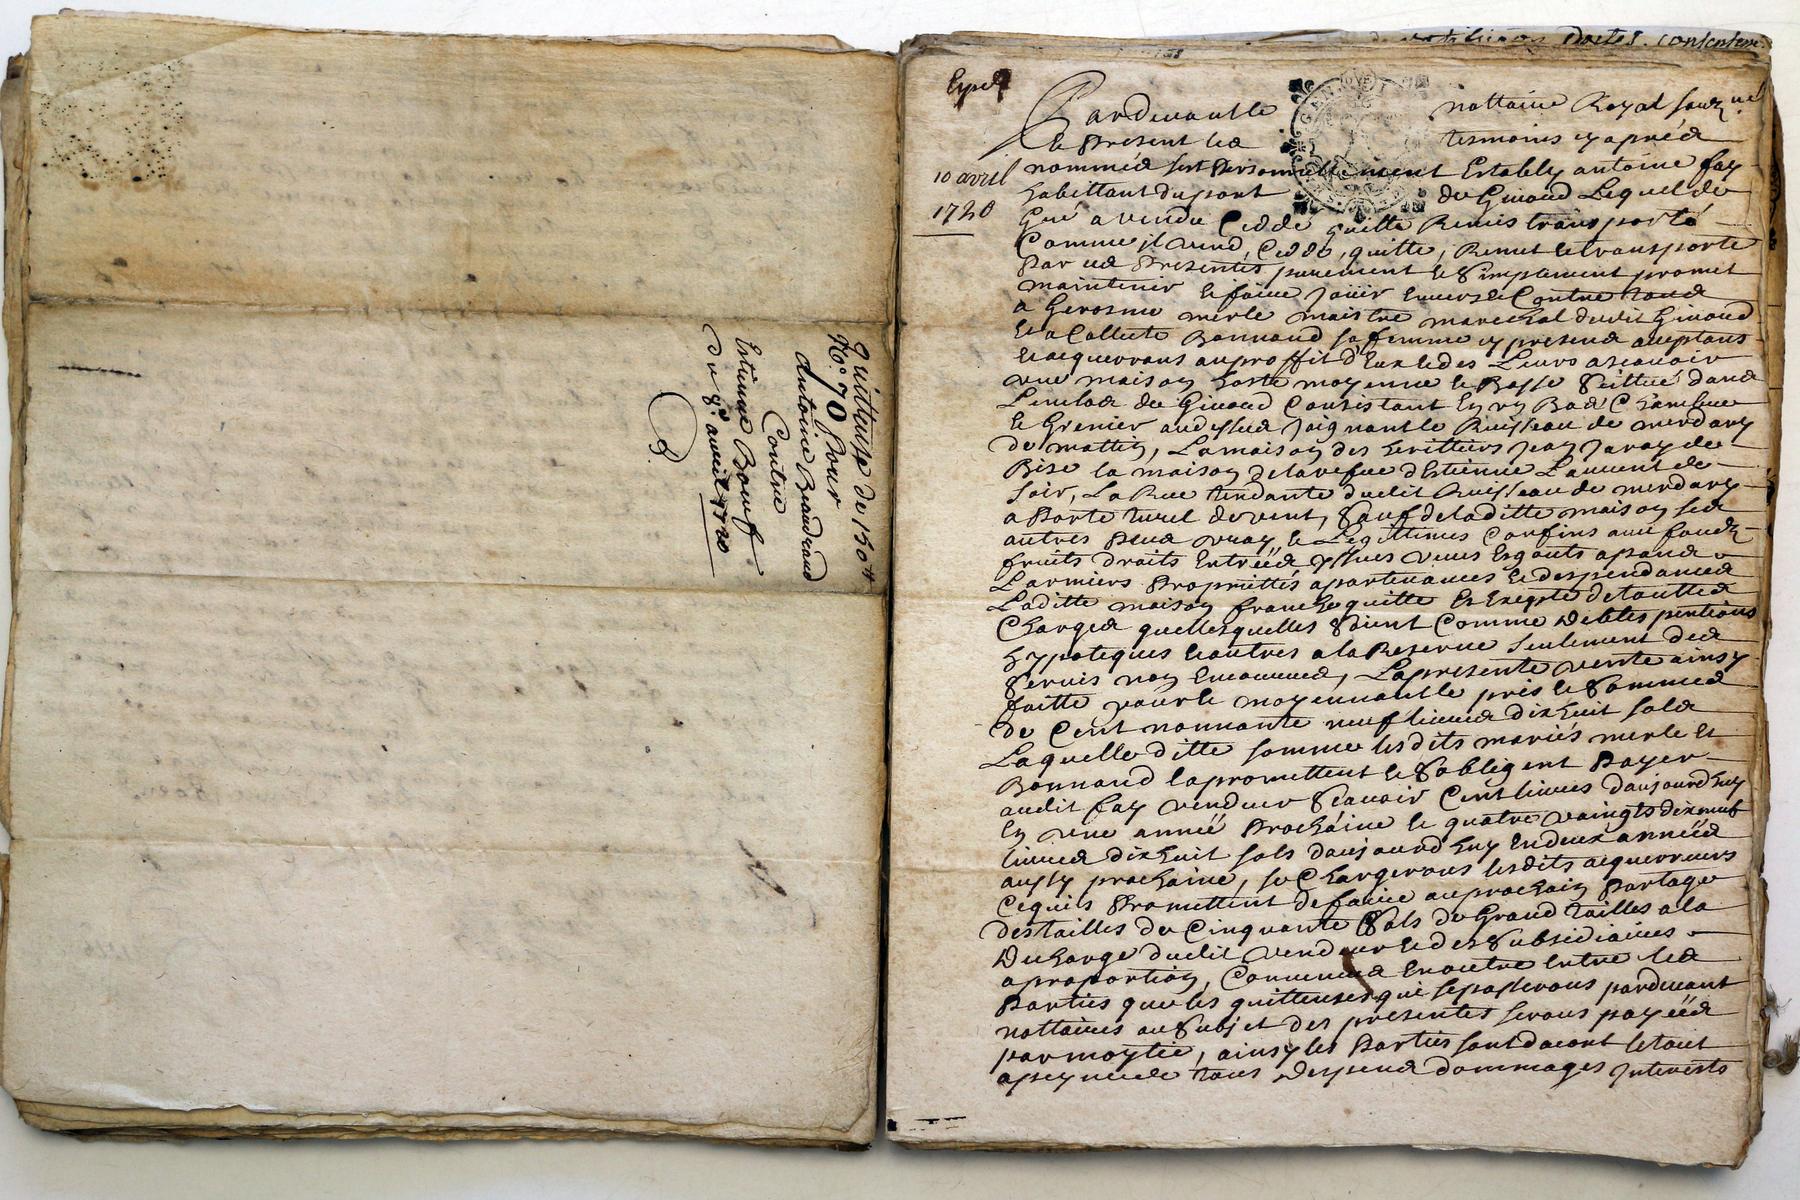 Quittance de 150 tt
N.° 70 Pour
Antoine
Contre
Estienne Bouf
du 8.e avril 1720
Exped
10 avril
1720
Pardevant le nottaire Royal souz.né
Et Present les tesmoins cy apréz
nommés fut Personnellement Estably antoine fay
habittant du pont de Giraud Lequel de
Gré a vendu Ceddé quitté Remis transporté
Comme il vend, Cedde, quitte, Remet et transporte
Par ces Presentes purement et Simplement promet
maintenir et faire Jouir Envers et Contre tous
a Gerosme merle maistre marechal dudit Giraud
Et a Collette Bonnand sa femme cy presens aceptans
Et acquerrans au proffit d'Eux et des Leurs ascavoir
une maison haste moyenne et Basse Scittué dans
Lenclos de Giraud Consistant En un Bas Chambre
et Grenier au dessus Joignant le Ruisseau de merdary
de mattin, La maison des heritiers Jean Jaray de
Bise la maison de la vefve d'Estienne Laurent de
Soir, La Rue tendante dudit Ruisseau de merdary
a Porte de vent, Sauf de laditte maison ses
autres plus vray et Legittimes Confins avec fondz
fruits droits Entrées yssues veues Esgouts apand
Larmiers Proprietés apartenances et despendances
Laditte maison franche quitte Et Exempte de touttes
Charges quelles quelles Soient Comme debtes pentions
hypoteques et autres a la Reserve seulement des
Servis non Encourus, La presente vente ainsy
faitte pour et moyennant le prés et Somme
de Cent nonnante neuf livres dix huit sols
Laquelle ditte somme lesdits mariés merle et
Bonnand la promettent et Sobligent Payer
audit fay vendeur Scavoir Cent livres daujourdhuy
En une année Prochaine et quatre vaingts dix neuf
livres dix huit sols daujourdhuy En deux années
aussy prochaine, se Chargerons lesdits acquerreurs
Ce quils Promettent de faire au prochain Partage
des tailles de Cinquante Sols de Grand tailles a la
Decharge dudit vendeur et des Subsidiaires
a proportion, Convenus En outre Entre les
Parties que les quittances qui se passerons pardevant
nottaires au Subjet des presentes serons payées
par moytié, ainsy les Parties sont dacort le tout
a peyne de tous despens dommages Interests